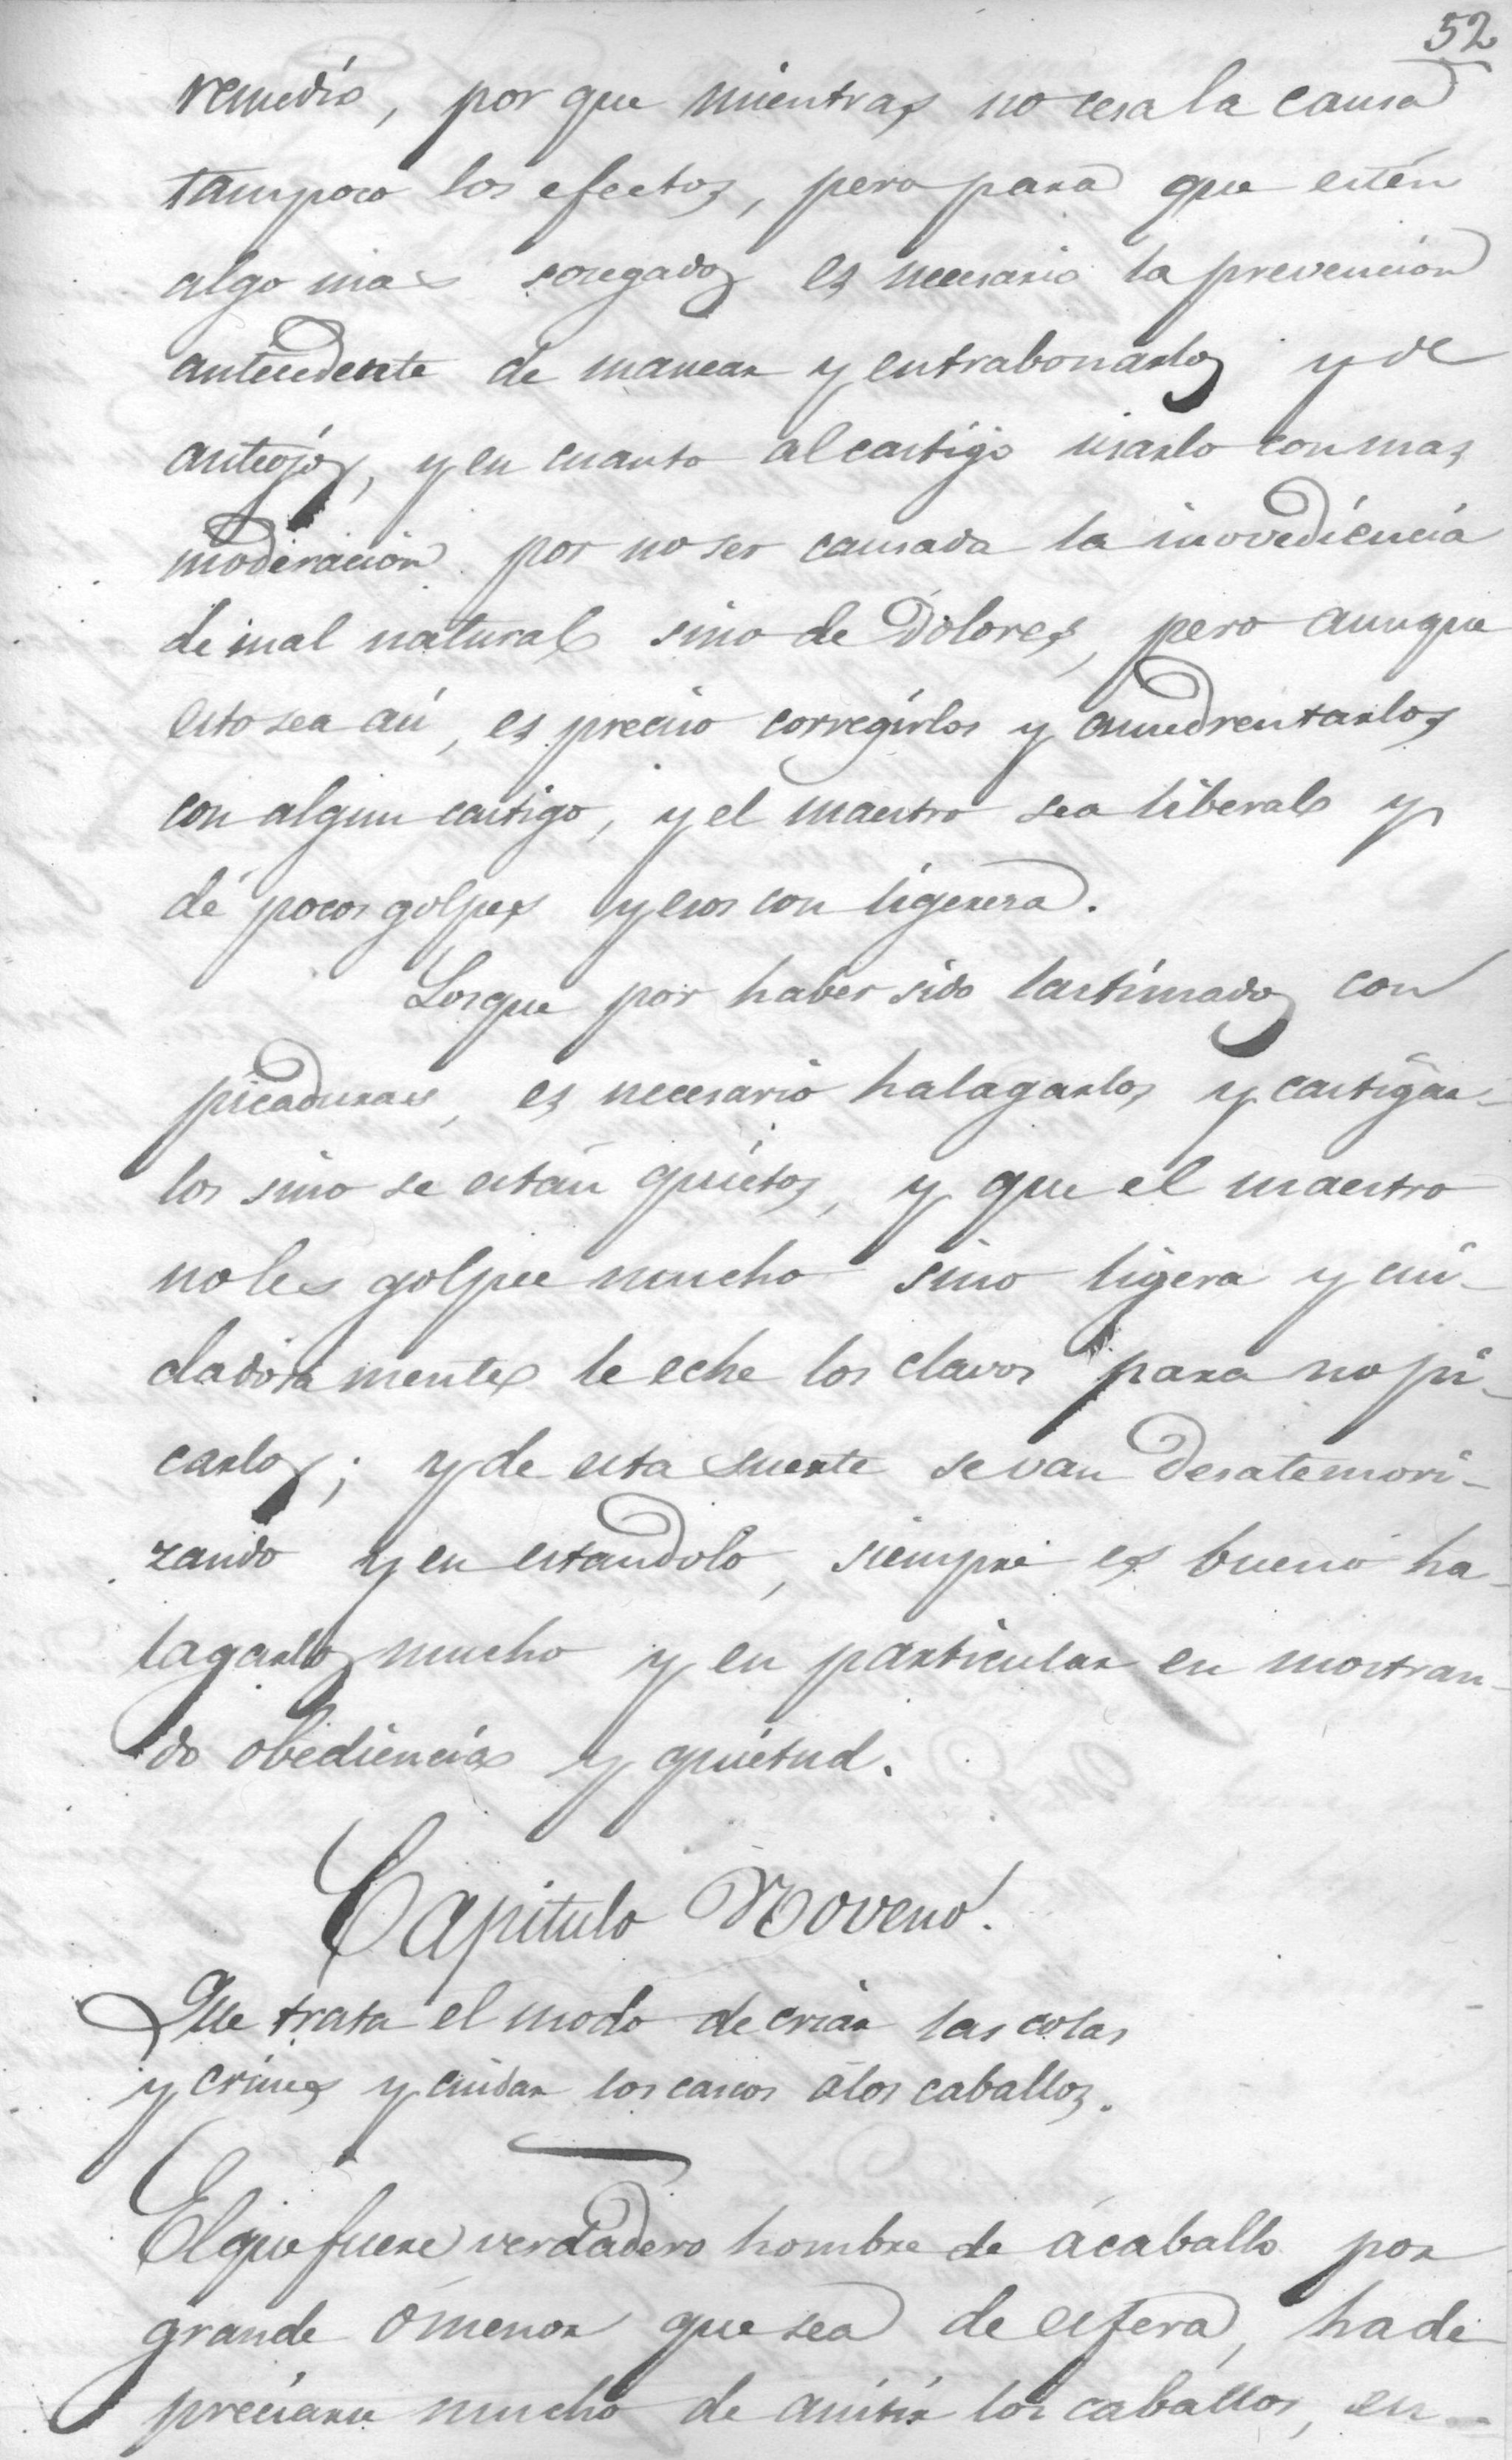 52
remedio, por que mientras no cesa la causa
tampoco los efectos, pero para que estén
algo mas sosegados es necesario la prevencion
antecedente de manear y entrabonarlos y de
anteojos, y en cuanto al castigo usarlo con mas
moderacion por no ser causada la inovediencia
de mal natural sino de Dolores, pero aunque
esto sea así, es preciso corregirlos y amedrentarlos
con algun castigo, y el maestro sea liberal y
dé pocos golpes y esos con ligeresa.
Los que por haber sido lastimados con
picaduras, es necesario halagarlos y castigar-
los sino se están quietos, y que el maestro
no les golpee mucho sino ligera y cui-
dadosamente le eche los clavos para no pi-
carlos; y de esta suerte se van desatemori-
zando y en estandolo, siempre es bueno ha-
lagarlos mucho y en particular en mostran-
do obediencia y quietud.
Capitulo Noveno.
Que trata el modo de criar las colas
y crines y cuidar los cascos á los caballos.
El que fuere verdadero hombre de ácaballo por
grande ó menor que sea de esfera, ha de
preciarse mucho de asistir los caballos, en